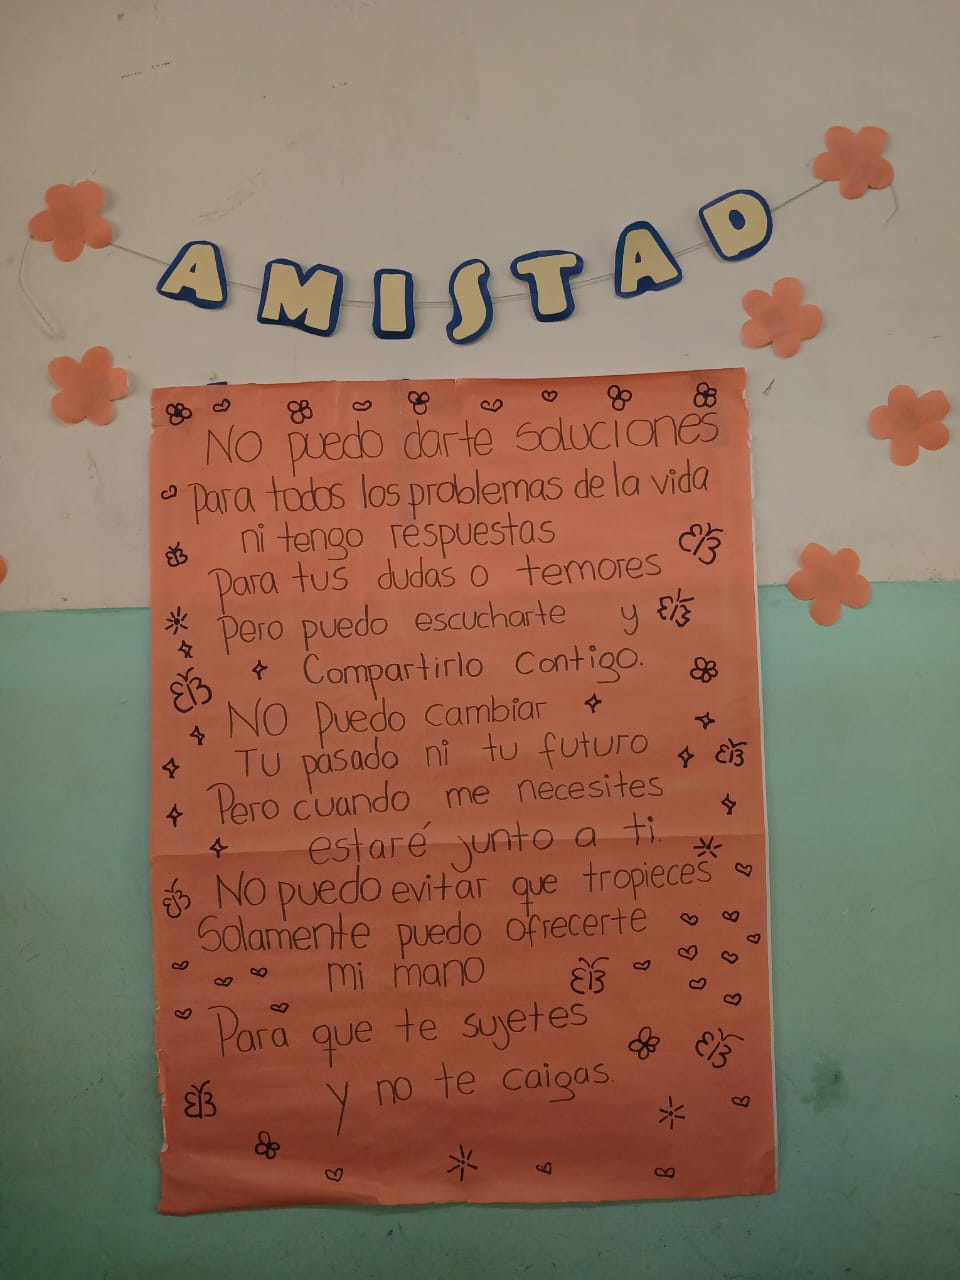 AMISTAD
No puedo darte soluciones
Para todos los problemas de la vida
ni tengo respuestas
Para tus dudas o temores
Pero puedo escucharte y
Compartirlo contigo.
No puedo cambiar
Tu pasado ni tu futuro
Pero cuando me necesites
estaré junto a ti.
No puedo evitar que tropieces
Solamente puedo ofrecerte
mi mano
Para que te sujetes
y no te caigas.